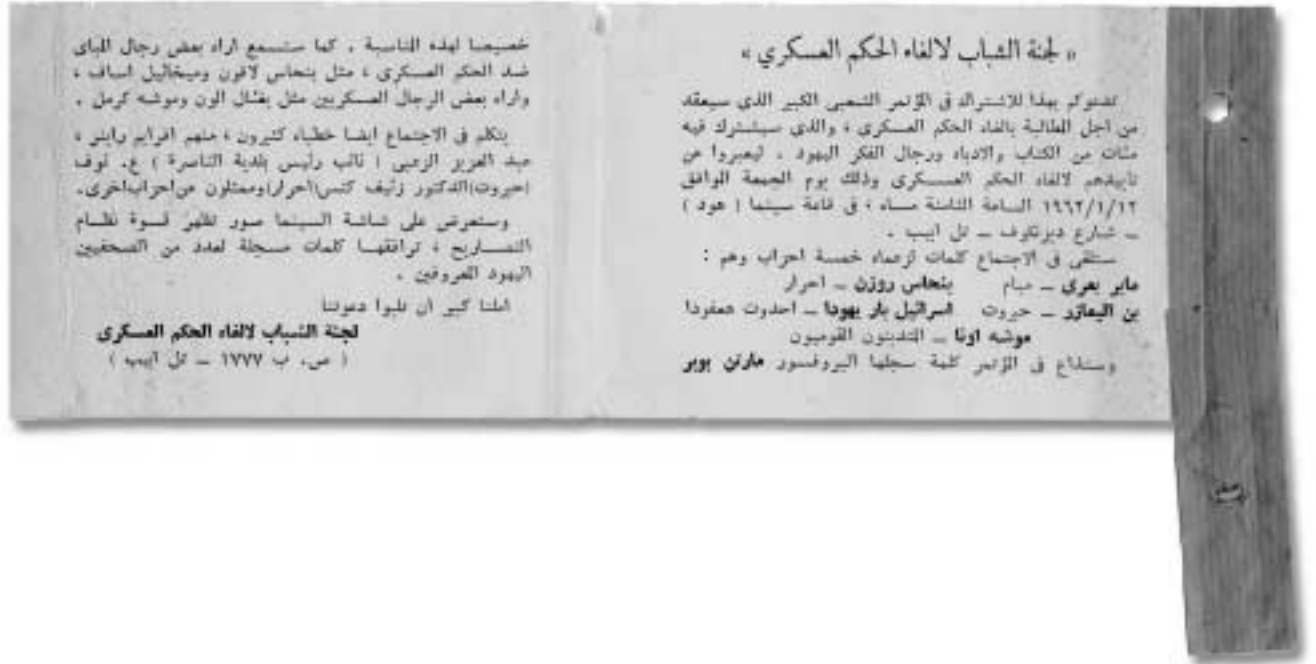 « لجنة الشباب لالغاء الحكم العسكري »
ندعوكم بهذا للاشتراك في المؤتمر الشعبي الكبير الذي سيعقد
من اجل المطالبة بالغاء الحكم العسكرى ، والذى سيشترك فيه
مئات من الكتاب والادباء ورجال الفكر اليهود . ليعبروا عن
تاييدهم لالغاء الحكم العسـكرى وذلك يوم الجمعة الوافق
١٩٦٢/١/١٢ الساعة الثامنة مساء ، فى قاعة سينما ( هود )
ــ شارع ديزنكوف ــ تل ابيب .
ستلقى فى الاجتماع كلمات لزعماء خمسة احزاب وهم :
ماير يعرى ــ مبام بنحاس روزن ــ احرار
بن اليعازر ــ حيروت اسرائيل بار يهودا ــ احدوت هعفودا
موشه اونا ــ المتدينون القوميون
وستذاع فى المؤتمر كلمة سجلها البروفسور مارتن بوبر
خصيصا لهذه المناسبة . كما ستسمع اراء بعض رجال المباى
ضد الحكم العسكرى ، مثل بنحاس لافون وميخائيل اساف ،
واراء بعض الرجال العسكريين مثل يغئال الون وموشه كرمل .
يتكلم فى الاجتماع ايضا خطباء كثيرون ، منهم افرايم راينر ،
عبد العزيز الزعبى ( نائب رئيس بلدية الناصرة ) ع. نوف
(حيروت)الدكتور زئيف كتس(احرار)وممثلون من احزاب اخرى.
وستعرض على شاشة السينما صور تظهر قسوة نظـام
التصـاريح ، ترافقهـا كلمات مسجلة لعدد من الصحفيين
اليهود المعروفين .
املنا كبير ان تلبوا دعوتنا
لجنة الشباب لالغاء الحكم العسكرى
( ص. ب ١٧٧٧ ــ تل ابيب )